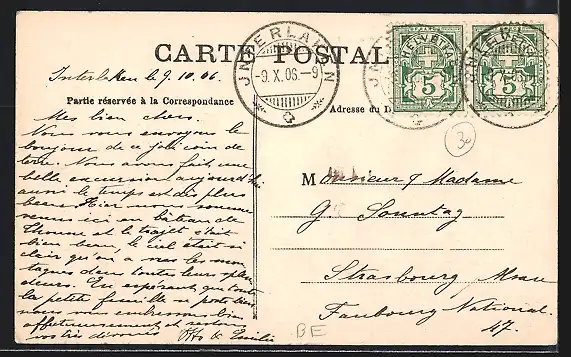 CARTE POSTALE
Interlaken le 9. 10. 06.
JNTERLAKEN
-9. X. 06.-9
HELVETIA
5
HELVETIA
5
Partie réservée à la Correspondance
Adresse du D
30
Mes bien chers.
Nous vous envoyons le
bonjour de ce joli coin de
terre. Nous avons fait une
belle excursion aujourd'hui
aussi le temps est des plus
beau. Hier nous sommes
venus ici en bateau de
Thoune et le trajet était
bien beau, le ciel était si
clair qu'on a vu les mon
tagnes dans toutes leurs splen
deurs. En espérant que toute
la petite famille se porte bien
nous vous embrassons bien
affectueusement et restons
vos très dévoués Otto & Emilie
Monsieur & Madame
G. Sonntag
Strasbourg Alsace
Faubourg National.
47.
BE